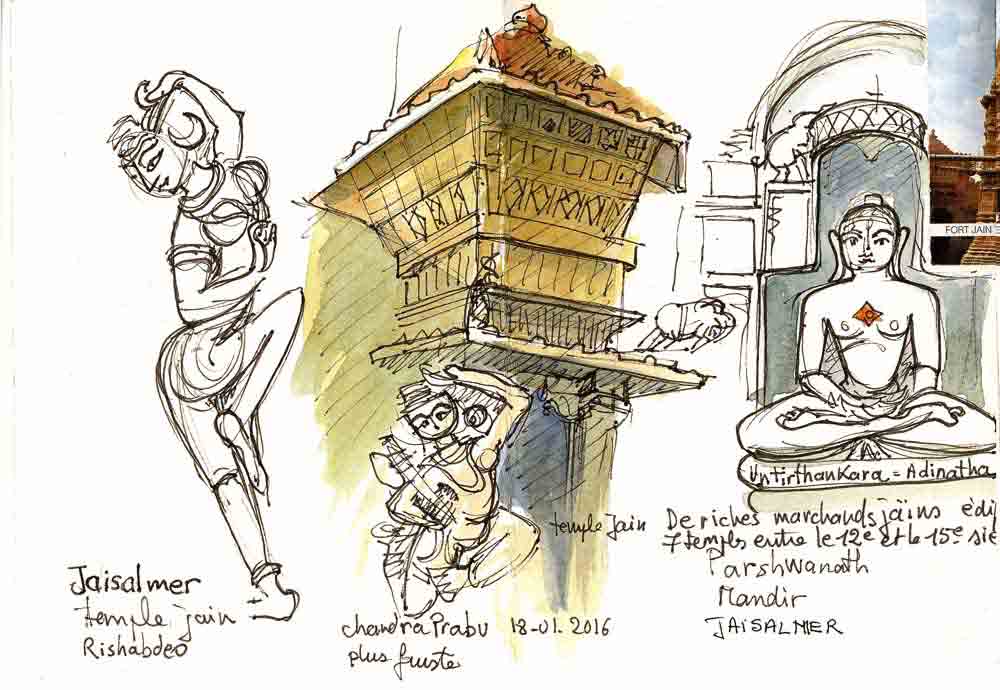 Jaisalmer
temple jain
Rishabdeo
chandra Prabu 18-01.2016
plus fruste
temple Jain
FORT JAIN
Un tirthankara = Adinatha
De riches marchands jäins édi
7 temples entre le 12e et le 15e siè
Parshwanath
Mandir
JAISALMER